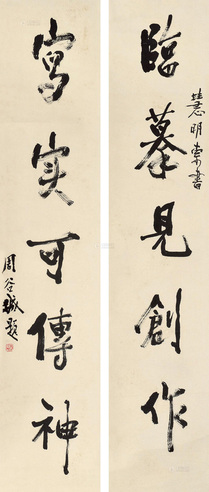 臨摹見創作
慧明索書
寫实可傳神
周谷城題